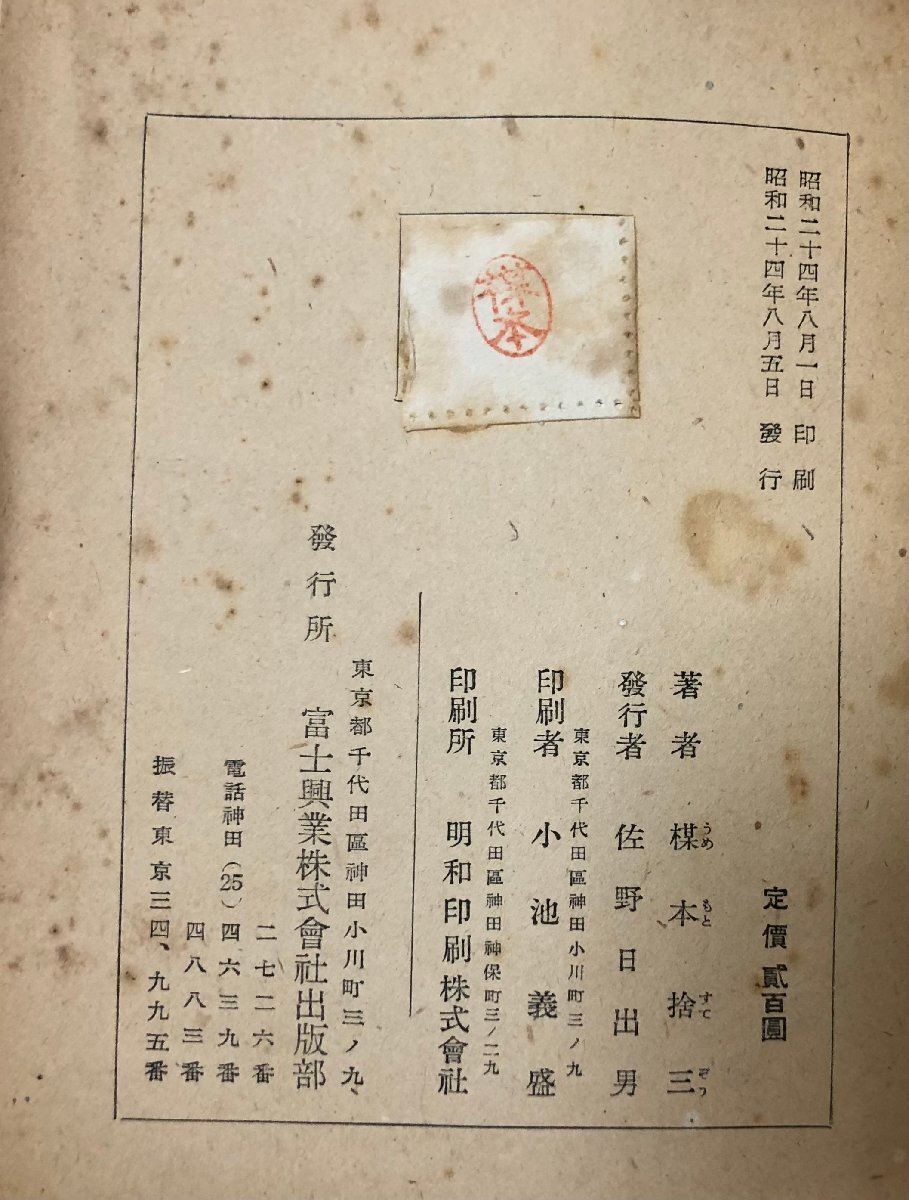 昭和二十四年八月一日 印刷
昭和二十四年八月五日 發行
定價 貳百圓
楳本
著者 楳本捨三
うめ もと すて ぞう
發行者 佐野日出男
東京都千代田區神田小川町三ノ九
印刷者 小池義盛
東京都千代田區神田神保町三ノ二九
印刷所 明和印刷株式會社
東京都千代田區神田小川町三ノ九、
發行所 富士興業株式會社出版部
二七二六番
電話神田(25)四六三九番
四八八三番
振替東京三四、九九五番